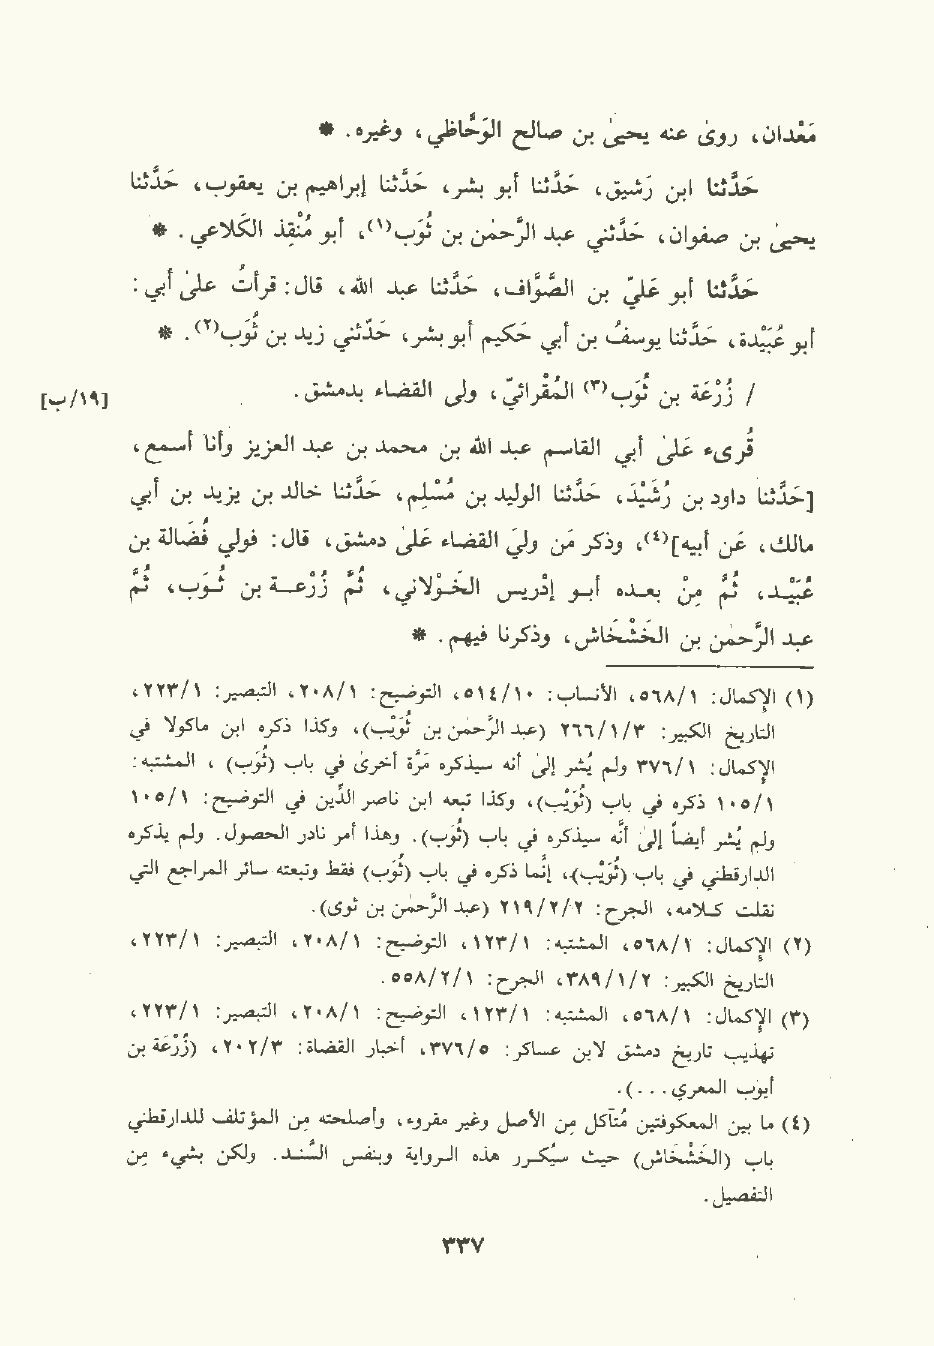 مَعْدان، روىٰ عنه يحيىٰ بن صالح الوَحَّاظي، وغيره. *
حَدَّثنا ابن رَشيق، حَدَّثنا أبو بشر، حَدَّثنا إبراهيم بن يعقوب، حَدَّثنا
يحيىٰ بن صفوان، حَدَّثني عبد الرَّحمٰن بن ثُوَب(١)، أبو مُنْقِذ الكَلاعي. *
حَدَّثنا أبو عَليّ بن الصَّوَّاف، حَدَّثنا عبد الله، قال: قرأتُ علىٰ أبي:
أبو عُبَيْدة، حَدَّثنا يوسفُ بن أبي حَكيم أبو بشر، حَدَّثني زيد بن ثُوَب(٢). *
/ زُرْعَة بن ثُوَب(٣) المُقْرائيّ، ولى القضاء بدمشق.
[١٩/ب]
قُرىء عَلىٰ أبي القاسم عبد الله بن محمد بن عبد العزيز وأنا أسمع،
[حَدَّثنا داود بن رُشَيْد، حَدَّثنا الوليد بن مُسْلِم، حَدَّثنا خالد بن يزيد بن أبي
مالك، عَن أبيه](٤)، وذكر مَن وَلي القضاء عَلىٰ دمشق، قال: فولي فُضَالة بن
عُبَيْد، ثُمَّ مِنْ بعده أبو إدْريس الخَوْلاني، ثُمَّ زُرْعـة بن ثُـوَب، ثُمَّ
عبد الرَّحمٰن بن الخَشْخَاش، وذكرنا فيهم. *
(١) الإكمال: ٥٦٨/١، الأنساب: ٥١٤/١٠، التوضيح: ٢٠٨/١، التبصير: ٢٢٣/١،
التاريخ الكبير: ٢٦٦/١/٣ (عبد الرَّحمٰن بن ثُوَيْب)، وكذا ذكره ابن ماكولا في
الإكمال: ٣٧٦/١ ولم يُشر إلىٰ أنه سيذكره مَرَّة أخرىٰ في باب (ثُوَب) ، المشتبه:
١٠٥/١ ذكره في باب (ثُوَيْب)، وكذا تبعه ابن ناصر الدِّين في التوضيح: ١٠٥/١
ولم يُشر أيضاً إلىٰ أنَّه سيذكره في باب (ثُوَب). وهذا أمر نادر الحصول. ولم يذكره
الدارقطني في باب (ثُوَيْب)، إنَّما ذكره في باب (ثُوَب) فقط وتبعته سائر المراجع التي
نقلت كلامه، الجرح: ٢١٩/٢/٢ (عبد الرَّحمٰن بن ثوى).
(٢) الإكمال: ٥٦٨/١، المشتبه: ١٢٣/١، التوضيح: ٢٠٨/١، التبصير: ٢٢٣/١،
التاريخ الكبير: ٣٨٩/١/٢، الجرح: ٥٥٨/٢/١.
(٣) الإكمال: ٥٦٨/١، المشتبه: ١٢٣/١، التوضيح: ٢٠٨/١، التبصير: ٢٢٣/١،
تهذيب تاريخ دمشق لابن عساكر: ٣٧٦/٥، أخبار القضاة: ٢٠٢/٣، (زُرْعَة بن
أيوب المعري...).
(٤) ما بين المعكوفتين مُتآكل من الأصل وغير مقروء، وأصلحته من المؤتلف للدارقطني
باب (الخَشْخَاش) حيث سيُكرر هذه الرواية وبنفس السَّند. ولكن بشيء مِن
التفصيل.
٣٣٧